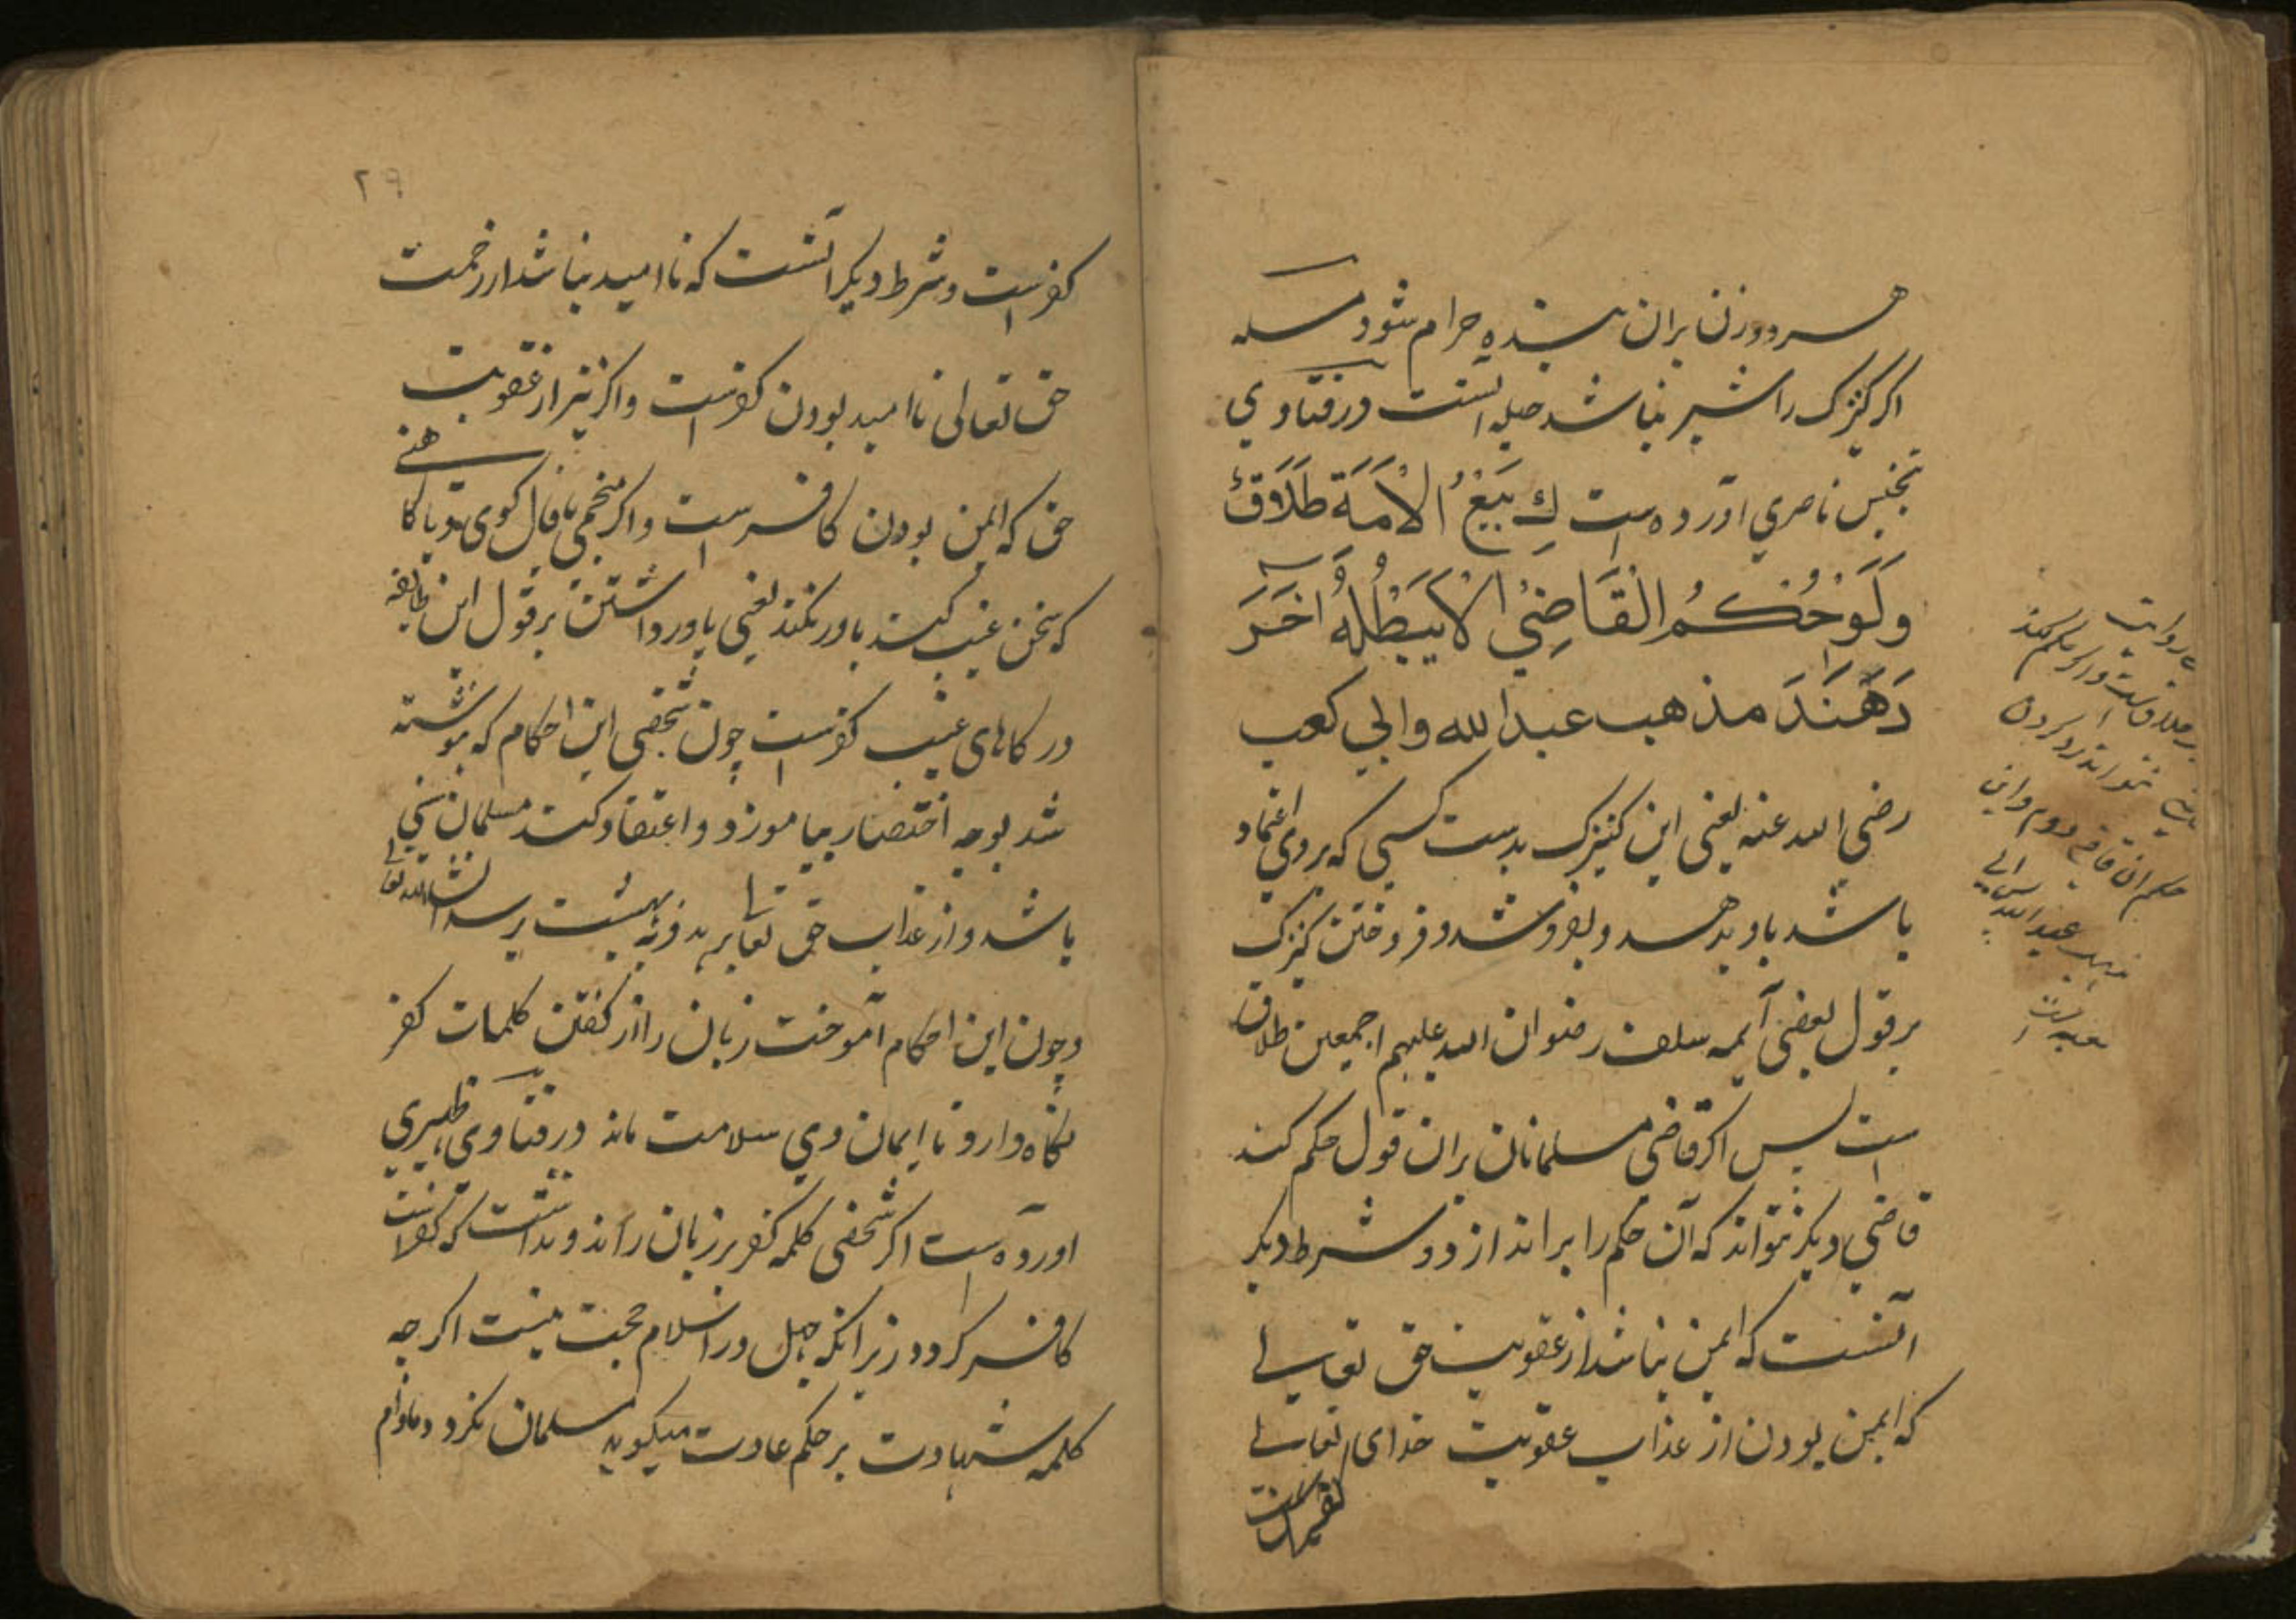 هر دو زن بران بنده حرام شود مسله
اکر کنیزک را شیر نباشد حیله انست در فتاوی
تجنیس ناصري اورده است كِ بَيْعُ الْاَمَة طَلَاقٌ
وَلَوْحُكْمُ القَاضِيْ لَا يَبْطُلهُ اخَرَ
دَهَنَدَ مذهب عبدالله وابي كعب
رضی الله عنه یعنی این کنیزک بدست کسی که بروی اعتماد
باشد باو بدهد و بفروشد و فروختن کنیزک
برقول بعضی آیمه سلف رضوان الله علیهم اجمعین طلاق
است پس اکر قاضی مسلمانان بران قول حکم کند
قاضی دیکر نتواند که آن حکم را براندازد و شرط دیکر
آنست که ایمن نباشد از عقوبت حق تعالی
که ایمن بودن از عذاب عقوبت خدای تعالی
کفر است
روایت
طلاقست و اکر حکم کند
نتواند رد کردن
حکم ان قاضی دوم و این
مذهب عبدالله
۲۹
کفر است و شرط دیکر آنست که ناامید نباشد از رحمت
حق تعالی ناامید بودن کفر است و اکر نیز از عقوبت
حق که ایمن بودن کافر است و اکر منجمی یا فال کوی بود یا کاهنی
که سخن غیب کند باور نکند یعنی باور داشتن برقول این طایفه
در کارهای غیب کفر است چون شخصی این احکام که نوشته
شد بوجه اختصار بیاموزد و اعتقاد کند مسلمان سنی
باشد و از عذاب حق تعالی برهد و به بهشت برسد انشاالله تعالی
و چون این احکام آموخت زبان را از کفتن کلمات کفر
نکاه دارد تا ایمان وی سلامت ماند در فتاوی ظهیری
اورده است اکر شخصی کلمه کفر بر زبان راند و ندانست که کفر است
کافر کردد زیرانکه جهل در اسلام حجت نیست اکرچه
کلمه شهادت بر حکم عادت میکوید مسلمان نکردد مادام